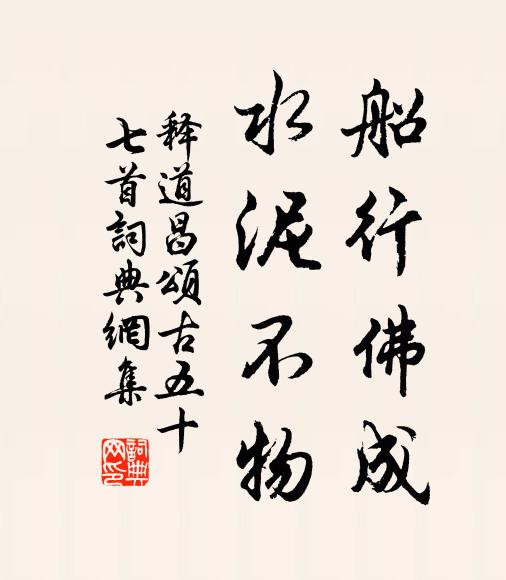 船行佛成
水泥不物
释道昌頌古五十
七首詞典網集
詞典
网印